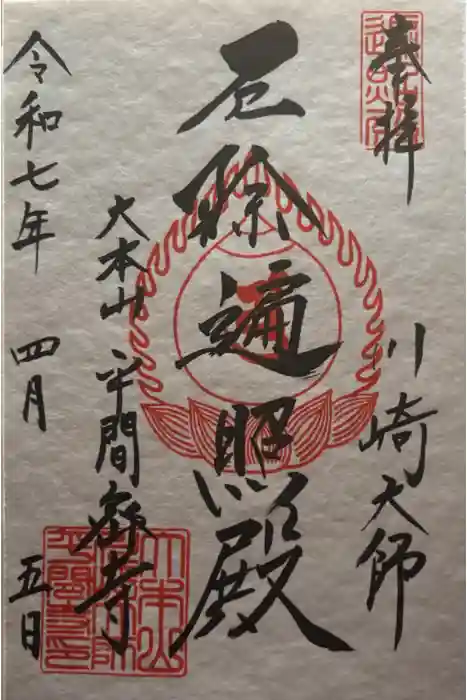 奉拝
川崎大師
厄除遍照殿
大本山平間寺
令和七年 四月 五日